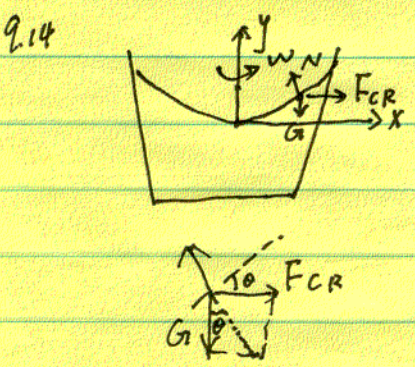 9.14
y
W N
F_CR
G
x
θ F_CR
G θ